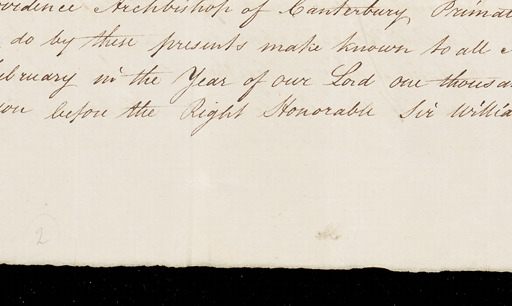 ovidence Archbishop of Canterbury Primat
do by these presents make known to all
ebruary in the Year of our Lord one thousa
before the Right Honorable Sir Willia
2